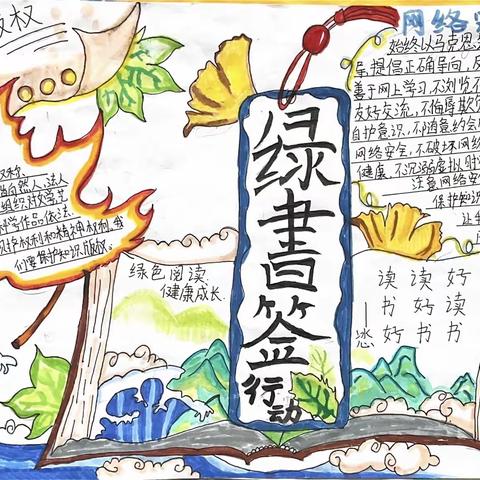 版权
自然人、法人
组织对文学艺
科学作品依法
权利和精神权利,我
们要保护知识版权。
绿色阅读
健康成长
绿書签
行动
网络
始终以马克思
导提倡正确导向,反
善于网上学习,不浏览不
友好交流,不侮辱欺
自护意识,不随意约会
网络安全,不破坏网络
健康,不沉溺虚拟时
注意网络安
保护知识
让
好读书
读好书
读书好